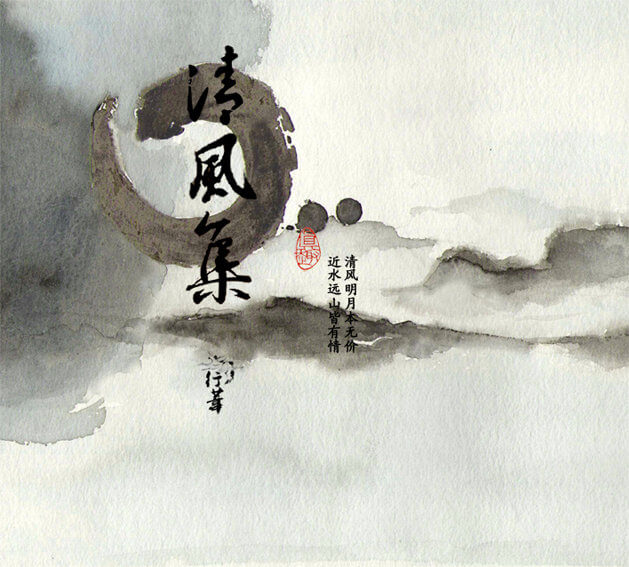 清風集
清风明月本无价
近水远山皆有情
行